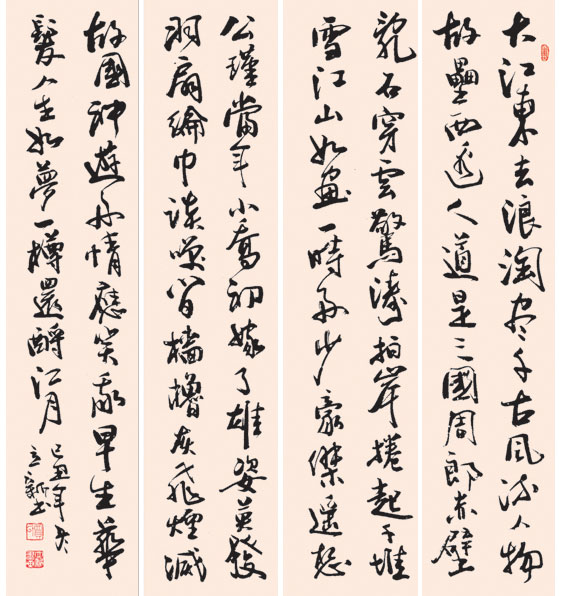 大江東去浪淘尽千古風流人物
故壘西邊人道是三國周郎赤壁
亂石穿雲驚濤拍岸捲起千堆
雪江山如畫一時多少豪傑遙想
公瑾當年小喬初嫁了雄姿英發
羽扇綸巾談咲間檣櫓灰飛煙滅
故國神遊多情應笑我早生華
髮人生如夢一樽還酹江月
己丑年冬
立新书